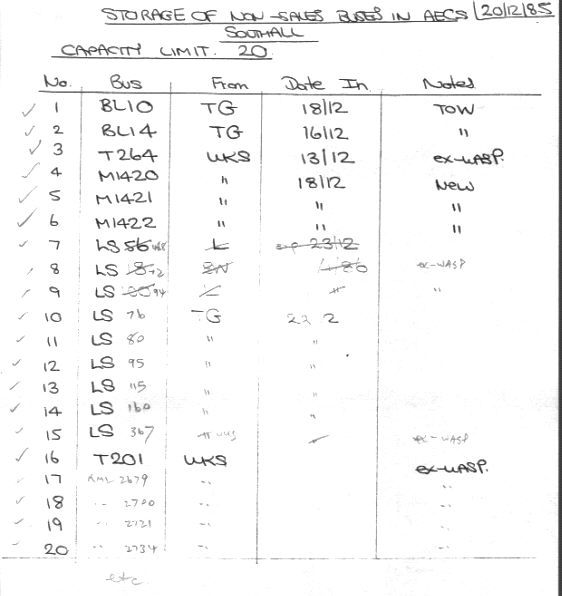 STORAGE OF NON-SALES BUSES IN AECS 20/12/85
SOUTHALL
CAPACITY LIMIT. 20
No. Bus From Date In Notes
✓ 1 BL10 TG 18/12 TOW
✓ 2 BL14 TG 16/12 "
✓ 3 T264 WKS 13/12 ex-WASP.
✓ 4 M1420 " 18/12 NEW
✓ 5 M1421 " " "
✓ 6 M1422 " " "
✓ 7 LS 56 L 23/12
8 LS 72 ex-WASP
9 LS 94 L " "
✓ 10 LS 76 TG 23 2
✓ 11 LS 80 " "
✓ 12 LS 95 " "
✓ 13 LS 115 " "
✓ 14 LS 160 " "
✓ 15 LS 367 ex-WASP
✓ 16 T201 WKS ex-WASP.
17 RML 2679 " "
✓ 18 " 2700 " "
✓ 19 " 2721 " "
✓ 20 " 2734 " "
etc